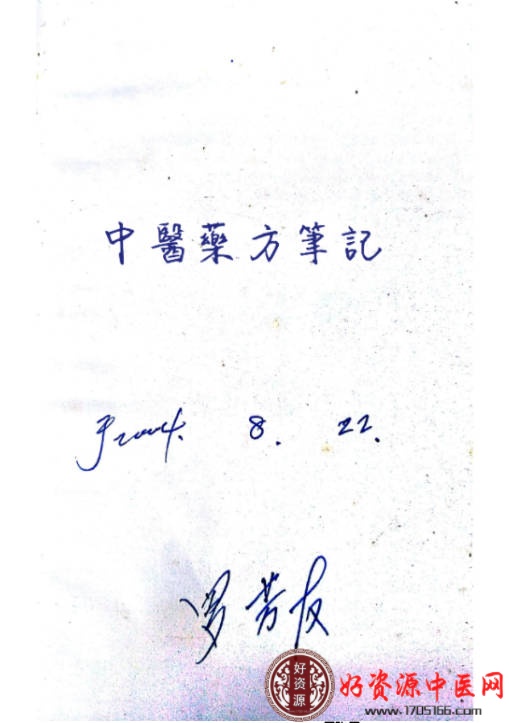 中醫藥方筆記
于2004. 8. 22.
罗芳友
好资源
好资源中医网
www.1705166.com